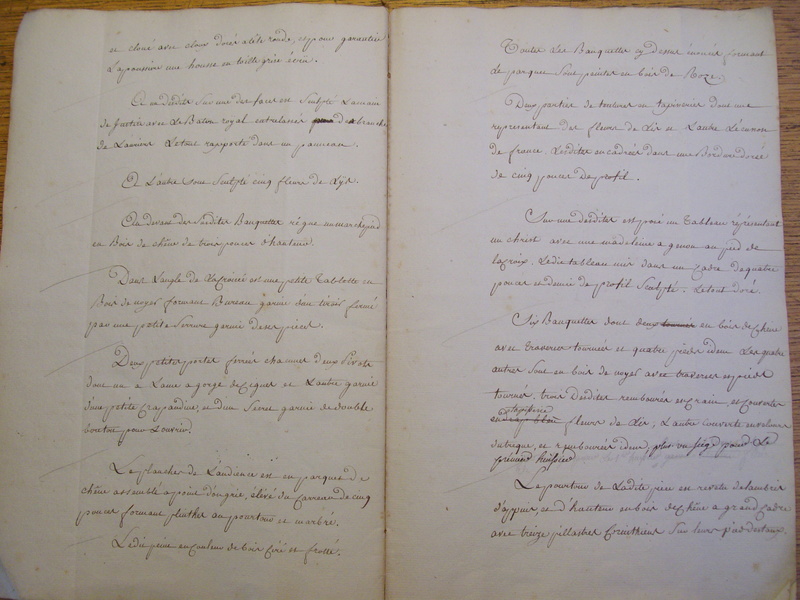 et cloué avec cloux dorés a tête ronde, et pour garantir
La poussiere une housse en toille grise écrue.
Et en dedite Sur une des faces est Sculpté La main
de Justice avec Le Baton royal entrelassés de branche
de Lauriers Le tout rapporté dans un panneau.
Et L'autre Sont Sculpté cinq fleurs de Lÿs.
Au devant des Susdites Banquettes règne un marchepied
en Bois de chêne de trois pouces d'hauteur.
Dans L'angle de La Croisée est une petite Tablette en
Bois de noyer formant Bureau garnie d'un tiroir fermé
par une petite Serrure garnie de ses pieces.
Deux petites portes ferrées chacunes deux Pivots
dont un a Lame a gorge de Cigne et L'autre garnie
d'une petite Crapaudine, et d'un Secret garnie de double
bouton pour L'ouvrir.
Le plancher de L'audience est en parquet de
chêne assemblé a point d'ongrie, élévé du Carreau de cinq
pouces formant plinthes au pourtour et marbré.
Ledit peint en Couleur de bois Ciré et frotté.
Toutes Les Banquettes cy dessus énoncées formant
Le parquet Sont peintes en bois de Roze.
Deux parties de tentures en tapisseries dont une
representant des fleurs de Lis et L'autre L'écusson
de france. Lesdittes encadrées dans une Bordure dorée
de cinq pouces de profil.
Sur une desdites est posé un Tableau réprésentant
un christ avec une madeleine a genou au pied de
La croix, Ledit tableau mis dans un Cadre de quatre
pouces et demie de profil Sculpté. Le tout doré.
Six Banquettes dont deux tournés en bois de chêne
avec traverses tournées et quatre pieds idem Les quatre
autres Sont en bois de noyer avec traverses et pieds
tournés, trois Desdites rembourées en crain, et Couvertes
tapisserie
en fleurs de Lis, L'autre Couverte en velours
et rembourée idem, plus un Siege pour Le
premier huissier
Le pourtour de Ladite piece est revetu de lambris
d'appuy et d'hauteur en bois de chêne a grand Cadre
avec treize pillastres Corinthiens Sur leurs piedestaux.